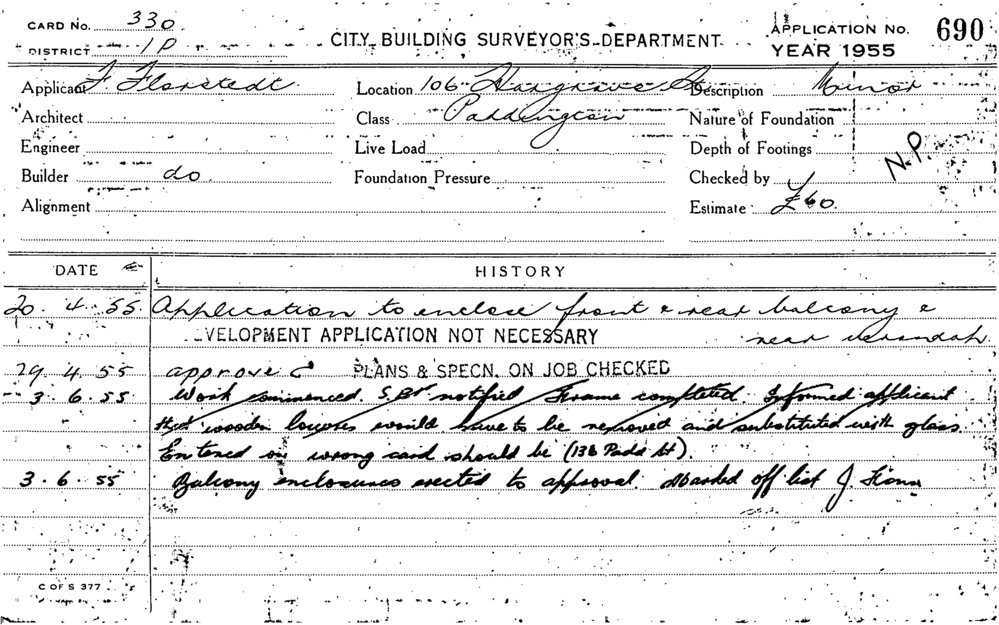 CARD No. 330
DISTRICT 1P
CITY BUILDING SURVEYOR'S DEPARTMENT
APPLICATION No. 690
YEAR 1955
Applicant F. Florstedt
Location 106 Hargrave St
Description Minor
Architect
Class Paddington
Nature of Foundation
Engineer
Live Load
Depth of Footings
N.P.
Builder do
Foundation Pressure
Checked by
Alignment
Estimate £60.
DATE
HISTORY
20. 4. 55. Application to enclose front & rear balcony &
VELOPMENT APPLICATION NOT NECESSARY
rear verandah.
29. 4. 55 approved PLANS & SPECN. ON JOB CHECKED
3. 6. 55 Work commenced. notified Frame completed. Informed applicant
that wooden louvres would have to be removed and substituted with glass.
Entered on wrong card should be (136 Padd St).
3. 6. 55 Balcony enclosures erected to approval. Marked off list J.
C OF S 377